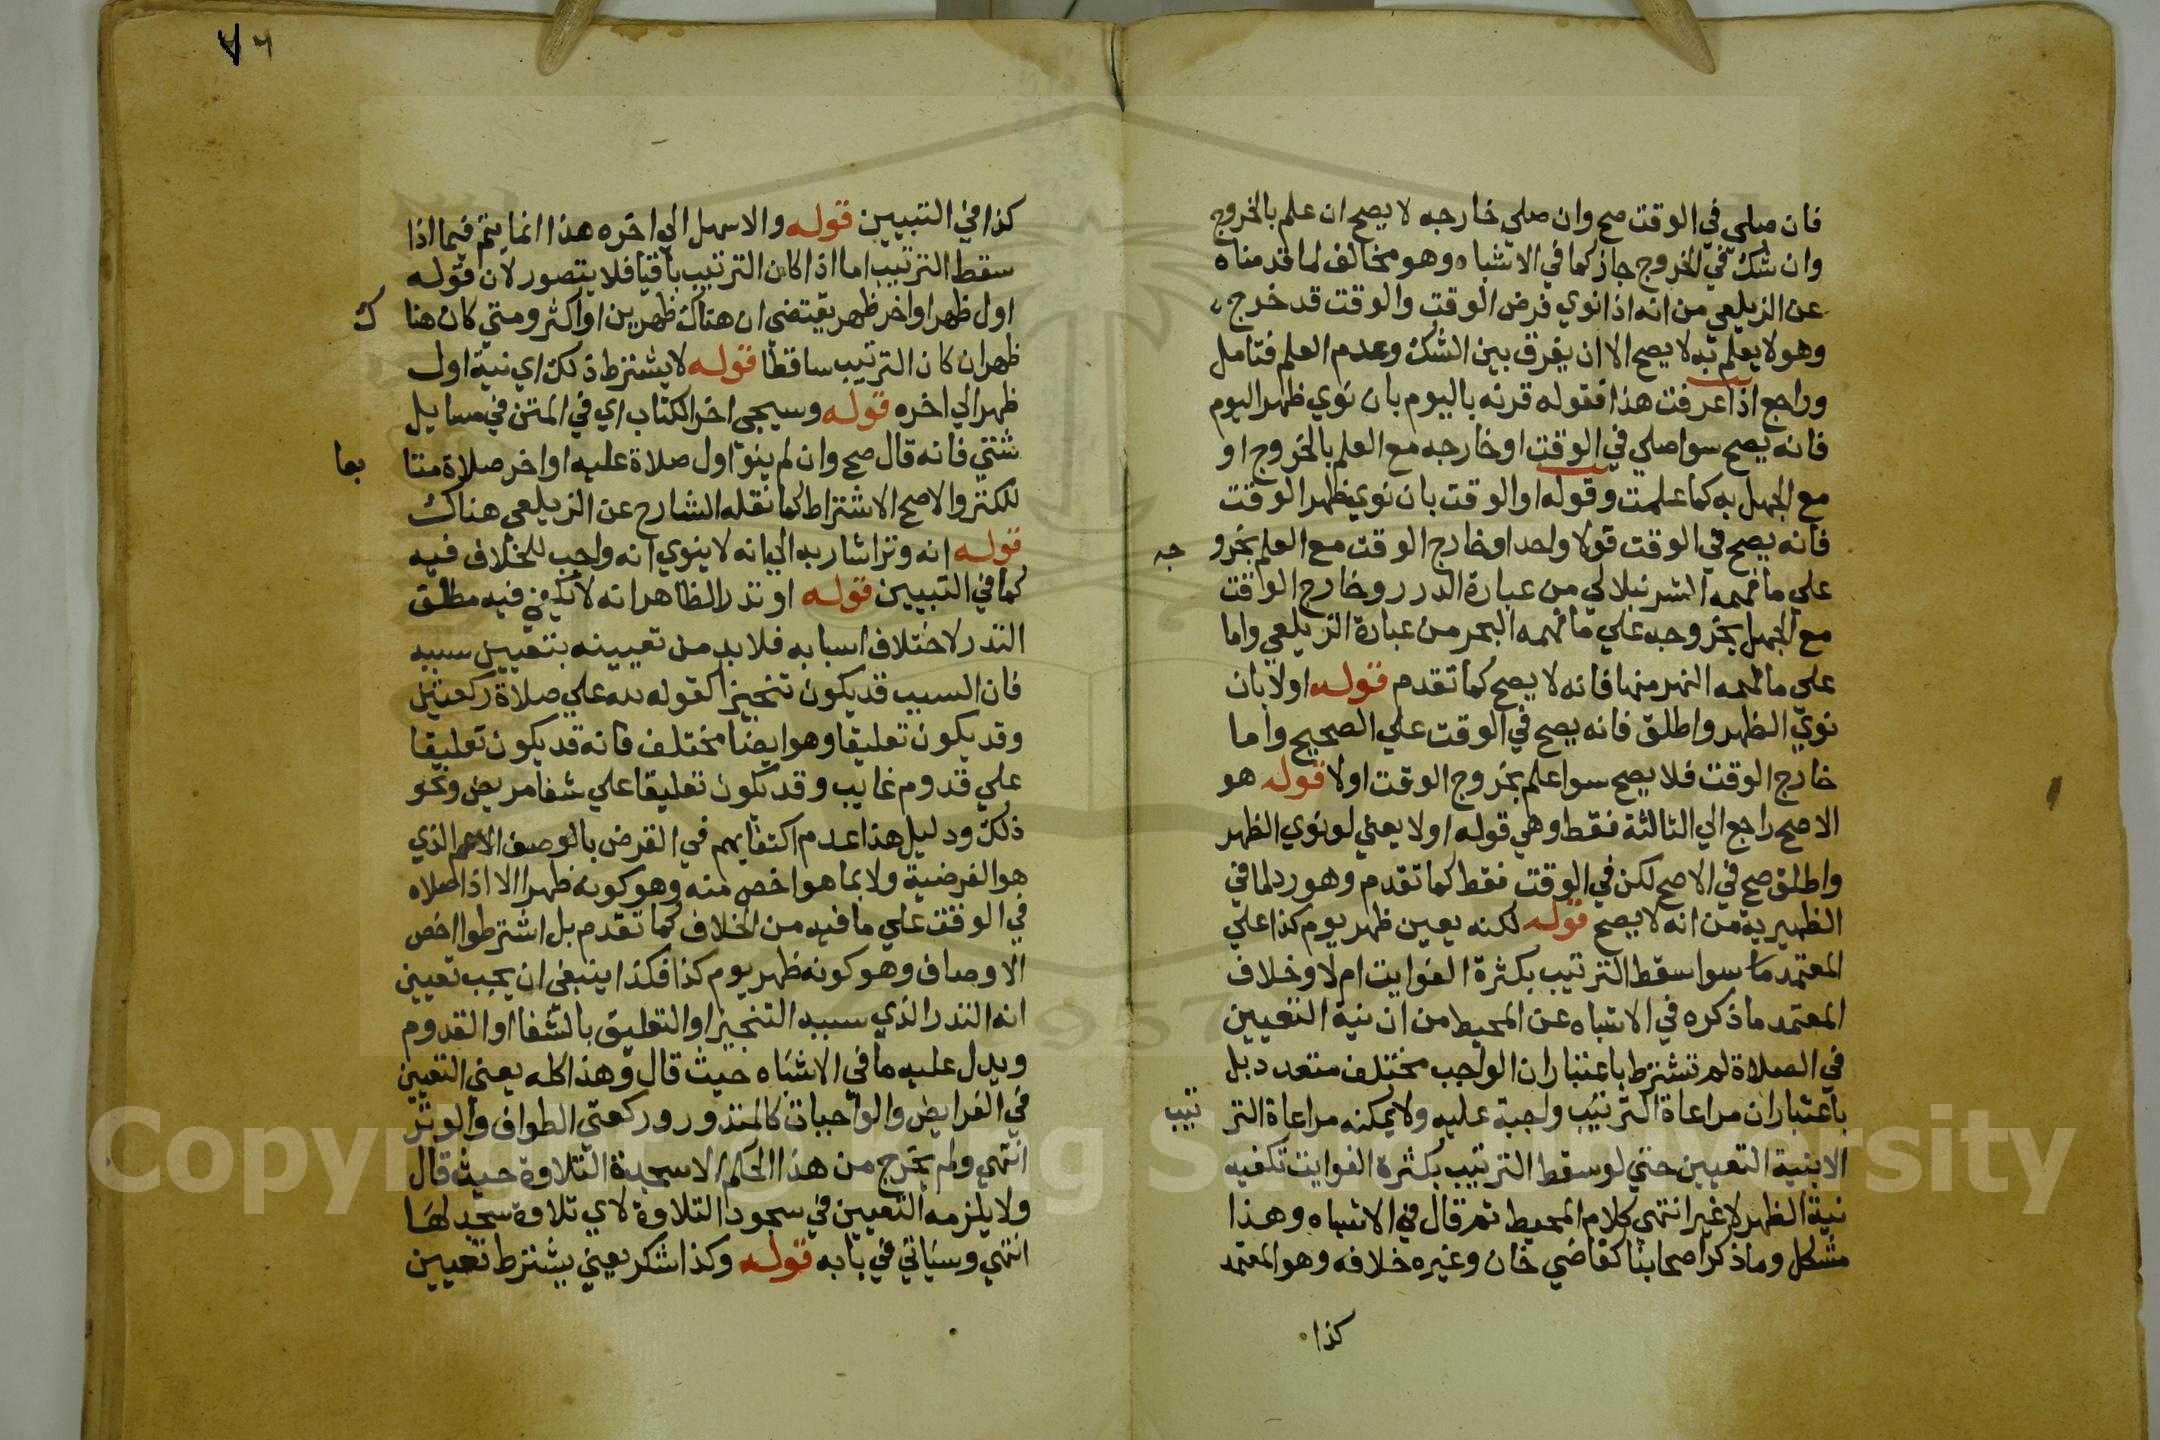 فان صلي في الوقت صح وان صلي خارجه لا يصح ان علم بالخروج
وان شك في الخروج جاز كما في الاشباه وهو مخالف لما قدمناه
عن الزيلعي من انه اذا نوي فرض الوقت والوقت قد خرج
وهو لا يعلم به لا يصح الا ان يفرق بين الشك وعدم العلم فتامل
وراجع اذا عرفت هذا فقوله قرنه باليوم بان نوي ظهر اليوم
فانه يصح سوا صلي في الوقت او خارجه مع العلم بالخروج او
مع الجهل به كما علمت وقوله او الوقت بان نوي ظهر الوقت
فانه يصح في الوقت قولا واحدا وخارج الوقت مع العلم بخرو جه
علي ما فهمه الشرنبلالي من عبارة الدرر وخارج الوقت
مع الجهل بخروجه علي ما فهمه البحر من عبارة الزيلعي واما
علي ما فهمه النهر منها فانه لا يصح كما تقدم قوله اولا بان
نوي الظهر واطلق فانه يصح في الوقت علي الصحيح واما
خارج الوقت فلا يصح سوا علم بخروج الوقت اولا قوله هو
الاصح راجع الي الثالثة فقط وهي قوله اولا يعني لو نوي الظهر
واطلق صح في الاصح لكن في الوقت فقط كما تقدم وهو رد لما في
الظهيرية من انه لا يصح قوله لكنه يعين ظهر يوم كذا علي
المعتمد سوا سقط الترتيب بكثرة الفوايت ام لا وخلاف
المعتمد ما ذكره في الاشباه عن المحيط من ان نية التعيين
في الصلاة لم تشترط باعتبار ان الواجب مختلف متعدد بل
باعتبار ان مراعاة الترتيب واجبة عليه ولا يمكنه مراعاة التر تيب
الابنية التعيين حتي لو سقط الترتيب بكثرة الفوايت تكفيه
نية الظهر لا غير انتهي كلام المحيط ثم قال في الاشباه وهذا
مشكل وما ذكر اصحابنا كقاضي خان وغيره خلافه وهو المعتمد
كذا
٧٦
كذا في التبيين قوله والاسهل الي اخره هذا انما يتم فيما اذا
سقط الترتيب اما اذا كان الترتيب باقيا فلا يتصور لان قوله
اول ظهر او اخر ظهر يقتضي ان هناك ظهرين او اكثر ومتي كان هنا ك
ظهران كان الترتيب ساقطا قوله لا يشترط ذلك اي نية اول
ظهر الي اخره قوله وسيجي اخر الكتاب اي في المتن في مسايل
شتي فانه قال صح وان لم ينو اول صلاة عليه او اخر صلاة متا بعا
للكنز والاصح الاشتراط كما نقله الشارح عن الزيلعي هناك
قوله انه وتر اشار به الي انه لا ينوي انه واجب للخلاف فيه
كما في التبيين قوله او نذر الظاهر انه لا يكفي فيه مطلق
النذر لاختلاف اسبابه فلا بد من تعيينه بتعيين سببه
فان السبب قد يكون تنجيزا كقوله لله علي صلاة ركعتين
وقد يكون تعليقا وهو ايضا مختلف فانه قد يكون تعليقا
علي قدوم غايب وقد يكون تعليقا علي شفا مريض ونحو
ذلك ودليل هذا عدم اكتفايهم في الفرض بالوصف الاعم الذي
هو الفرضية ولا بما هو اخص منه وهو كونه ظهرا الا اذا صلاه
في الوقت علي ما فيه من الخلاف كما تقدم بل اشترطوا اخص
الاوصاف وهو كونه ظهر يوم كذا فكذا ينبغي ان يجب تعيين
انه النذر الذي سببه التنجيز او التعليق بالشفا او القدوم
ويدل عليه ما في الاشباه حيث قال وهذا كله يعني التعيين
في الفرايض والواجبات كالمنذور وركعتي الطواف والوتر
انتهي ولم يخرج من هذا الحكم الا سجدة التلاوة حيث قال
ولا يلزمه التعيين في سجود التلاوة لاي تلاوة سجد لها
انتهي وسياتي في بابه قوله وكذا شكر يعني يشترط تعيين
Copyright © King Saud University
1957